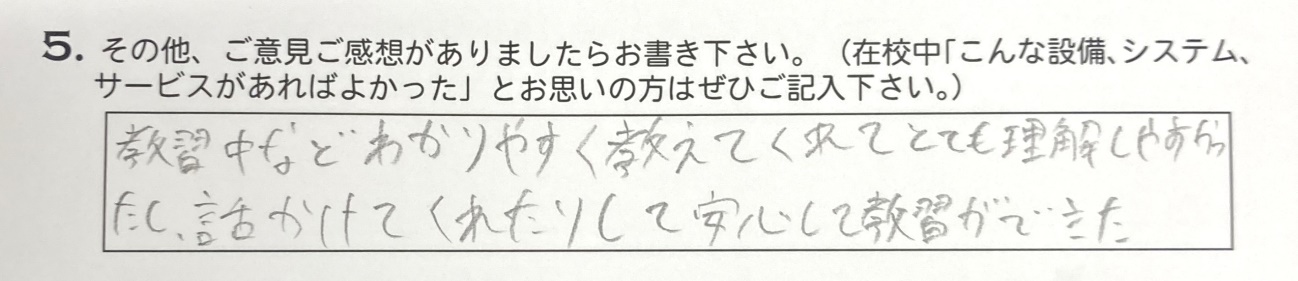 5. その他、ご意見ご感想がありましたらお書き下さい。（在校中「こんな設備、システム、
サービスがあればよかった」とお思いの方はぜひご記入下さい。）
教習中などわかりやすく教えてくれてとても理解しやすかっ
たし、話かけてくれたりして安心して教習ができた